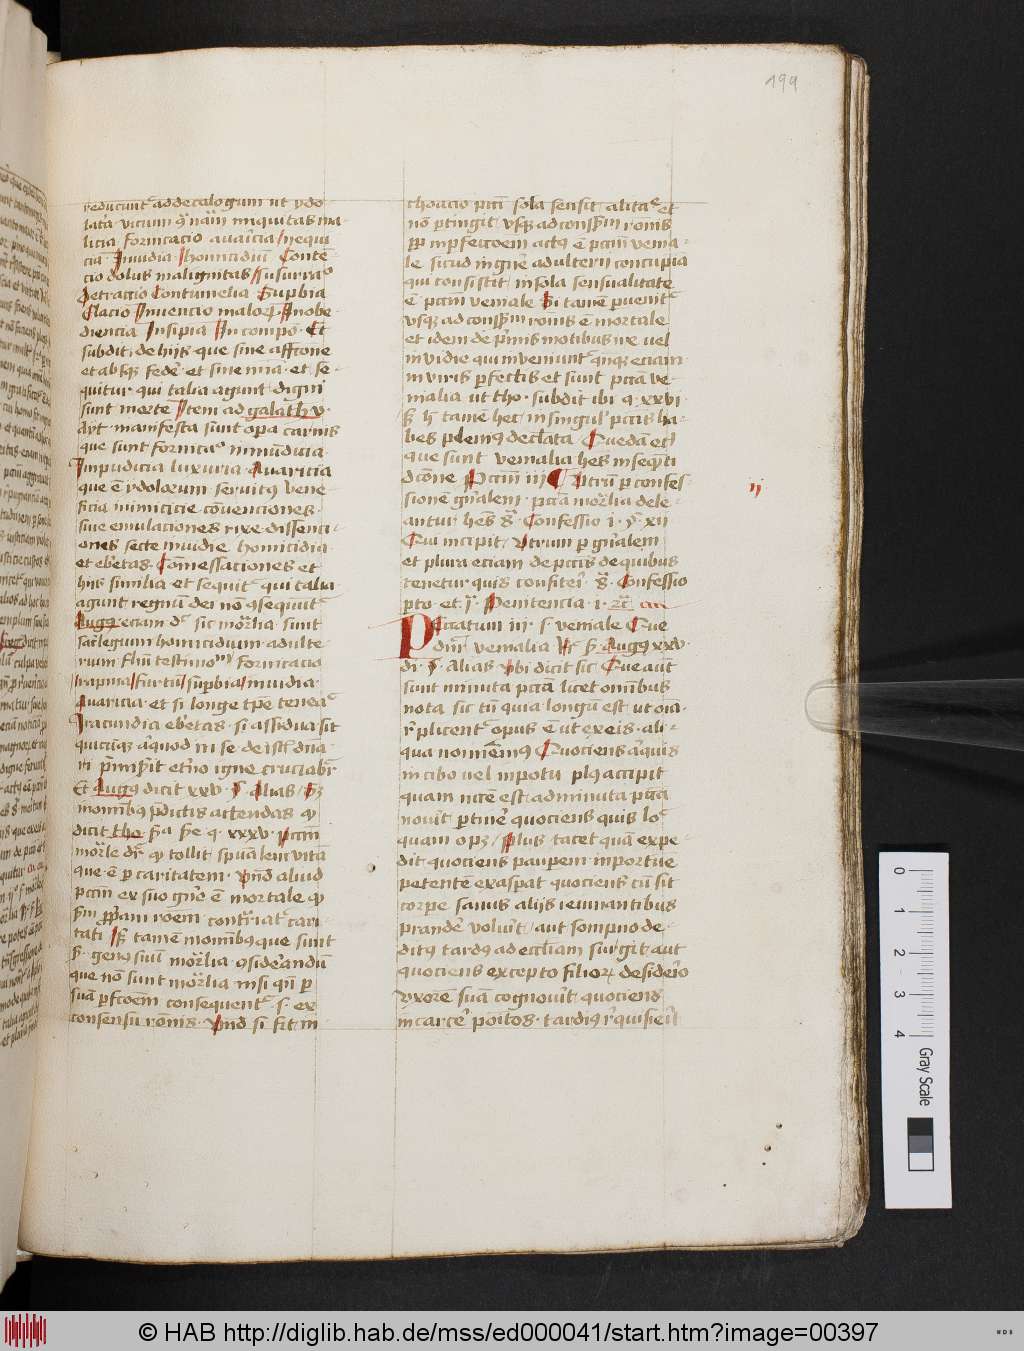 199
reducunt ad decalogum ut ydo
latria vicium nam iniquitas ma
licia fornicacio avaricia nequi
cia Invidia homicidium Conten
cio dolus malignitas Susurra
detractio Contumelia Supbia
Elacio Invencio malor Inobe
diencia Insipia Incompo Et
subdit de hijs que sine affcone
et absq federe et sine mia et se
quitur qui talia agunt digni
sunt morte Item ad galath v
dyt manifesta sunt opa carnis
que sunt fornica inmundicia
Impudicia luxuria Avaricia
que e ydolorum servitus vene
ficia inimicicie convenciones
sive emulaciones rixe dissenci
ones secte invidie homicidia
et ebetas Comessaciones et
hijs similia et sequit qui talia
agunt regnum dei no gsequit
Augg eciam d sic morlia sunt
sacrlegum homicidium adulte
rum flm testimo fornicacio
rapina furtum supbia invidia
Avaricia et si longe tpe tenea
Iracundia ebetas si assidua sit
quicuq aquod in se de ist dna
ri pmisit et no igne cruciabr
Et Augg dicit xxv Alias
nominbus pdictis attendas q
dicit tho pa q xxxv pccm
morle dr q tollit spualem vita
que e p caritatem vnd aliud
pccm ex suo gne e mortale q
ppam roem contriat cari
tati tame nominbus que sunt
genus suu morlia gsiderandu
que no sunt morlia nisi qn p
sua pfcoem consequent s ex
consensu ronis vnd si sit in
thoacio pcti sola sensit alita et
no ptingit vsq ad conss ronis
pp inpfeccoem actus e pccm venia
le sicud in gne adulterii concupia
qui consistit in sola sensualitate
e pccm veniale Si tame pvenit
vsq ad conss ronis e mortale
et idem de pmis motibus ire vel
invidie qui inveniunt qnq eciam
in viris pfectis et sunt pcca ve
nialia ut tho subdit ibi q xxvi
h tamen hec in singul pcctis ha
bes plenius declata Queda et
que sunt venialia hes in seqnti
dcone Pccm iij Utru p confes
sione gnalem pcca morlia dele
antur hes s Confessio i y xii
Qui incipit Utrum p gnalem
et plura eciam de pcctis de quibus
tenetur quis confiteri s Confessio
pto et ij Penitencia i
ij
Peccatum iij s veniale Que
dnr venialia Augg xxv
di Alias Ubi dicit sic Que aut
sunt minuta pcca licet omibus
nota sic tn quia longu est ut oia
rplicent opus e ut ex eis ali
qua noniemus Quociens aquis
in cibo vel in potu plus accipit
quam nece est ad minuta pcca
novit ptine quociens quis lo
quam opz Plus tacet quam expe
dit quociens paupem inportue
petente exaspat quociens cu sit
corpe sanus alijs ieiunantibus
prande voluit aut sompno de
ditus tardus ad eccliam surgit aut
quociens excepto filior desiderio
vxore sua cognovit quociens
in carce poitos tardius rquisierit
0 1 2 3 4 Gray Scale
© HAB http://diglib.hab.de/mss/ed000041/start.htm?image=00397